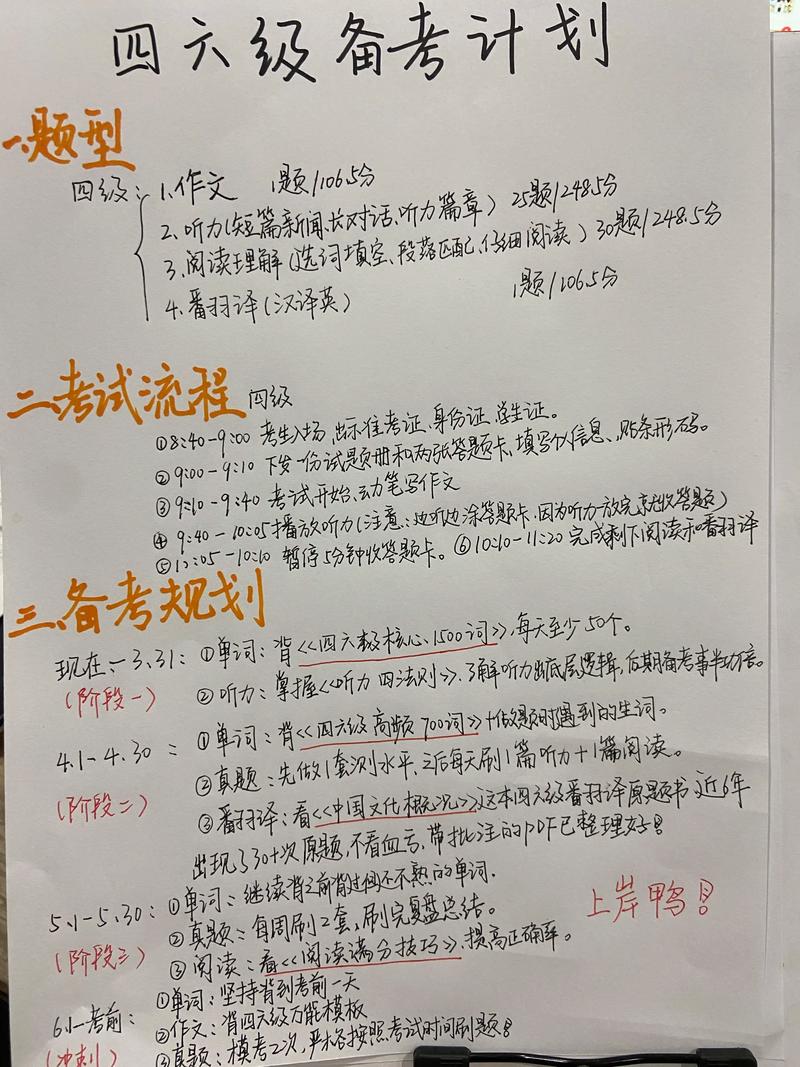 四六级备考计划
一、题型
四级：1.作文 1题/106.5分
2、听力(短篇新闻、长对话、听力篇章) 25题/248.5分
3、阅读理解(选词填空、段落匹配、仔细阅读) 30题/248.5分
4.翻译(汉译英) 1题/106.5分
二、考试流程 四级
①8:40-9:00 考生入场,出示准考证、身份证、学生证。
②9:00-9:10 下发一份试题册和两张答题卡,填写个人信息、贴条形码。
③9:10-9:40 考试开始,动笔写作文
④ 9:40-10:05播放听力(注意:边听边涂答题卡,因为听力一放完就收答题)
⑤10:05-10:10 暂停5分钟收答题卡。⑥10:10-11:20完成剩下阅读和翻译
三、备考规划
现在——3.31：①单词：背<<四六级核心1500词>>,每天至少50个。
(阶段一) ②听力：掌握<<听力四法则>>.了解听力出底层逻辑,后期备考事半功倍。
4.1-4.30：①单词：背<<四六级高频700词>>+做题时遇到的生词。
②真题：先做1套测水平,之后每天刷1篇听力+1篇阅读。
(阶段二) ③翻译：看<<中国文化概况>>这本四六级翻译原题书,近6年
出现了30+次原题,不看血亏,带批注的PDF已整理好!
5.1-5.30：①单词：继续背之前背过但还不熟的单词.
②真题：每周刷2套,刷完复盘总结。
(阶段三) ③阅读：看<<阅读满分技巧>>.提高正确率。
上岸鸭!!
6.1-考前：①单词：坚持背到考前一天
②作文：背四六级万能模板
(冲刺) ③真题：模考2次,严格按照考试时间刷题!